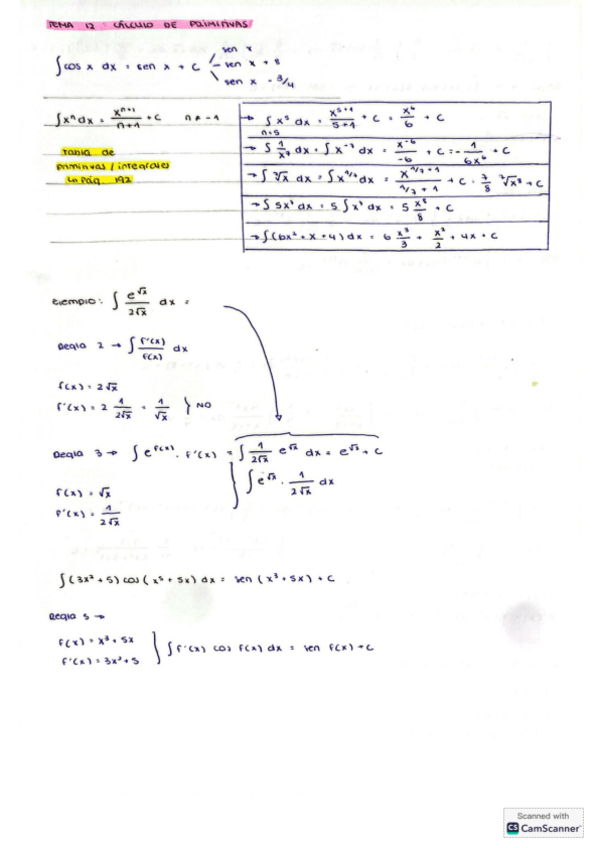 TEMA 12: CÁLCULO DE PRIMITIVAS
∫cos x dx = sen x + C
sen x
sen x + 8
sen x - 3/4
∫xⁿdx = xⁿ⁺¹/n+1 + C    n ≠ -1
Tabla de
primitivas / integrales
↳ Pág. 192
→ ∫ x⁵ dx = x⁵⁺¹/5+1 + C = x⁶/6 + C
n=5
→ ∫ 1/x⁷ dx = ∫ x⁻⁷ dx = x⁻⁶/-6 + C = -1/6x⁶ + C
→ ∫ ⁷√x dx = ∫ x^(1/7) dx = x^(1/7+1)/(1/7+1) + C = 7/8 ⁷√x⁸ + C
→ ∫ 5x⁷ dx = 5 ∫ x⁷ dx = 5 x⁸/8 + C
→ ∫(6x² + x + 4) dx = 6 x³/3 + x²/2 + 4x + C
ejemplo: ∫ e^√x/2√x dx =
Regla 2 → ∫ f'(x)/f(x) dx
f(x) = 2√x
f'(x) = 2 1/2√x = 1/√x } NO
Regla 3 → ∫ e^f(x) · f'(x) = ∫ 1/2√x e^√x dx = e^√x + C
∫ e^√x · 1/2√x dx
f(x) = √x
f'(x) = 1/2√x
∫(3x² + 5) cos (x³ + 5x) dx = sen (x³ + 5x) + C
Regla 5 →
f(x) = x³ + 5x
f'(x) = 3x² + 5
∫ f'(x) cos f(x) dx = sen f(x) + C
Scanned with
CS CamScanner